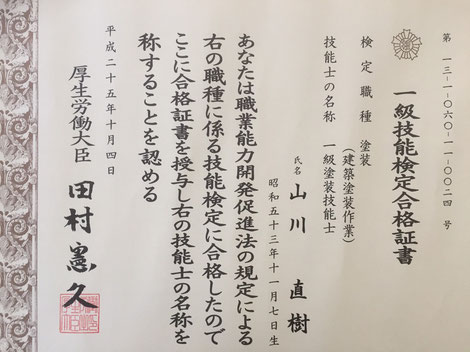 第 一三-一-〇六〇-一一-〇〇二四 号
一級技能検定合格証書
検定職種 塗装
(建築塗装作業)
技能士の名称 一級塗装技能士
氏名 山川 直樹
昭和五十三年十一月七日生
あなたは職業能力開発促進法の規定による
右の職種に係る技能検定に合格したので
ここに合格証書を授与し右の技能士の名称を
称することを認める
平成二十五年十月四日
厚生労働大臣 田村憲久